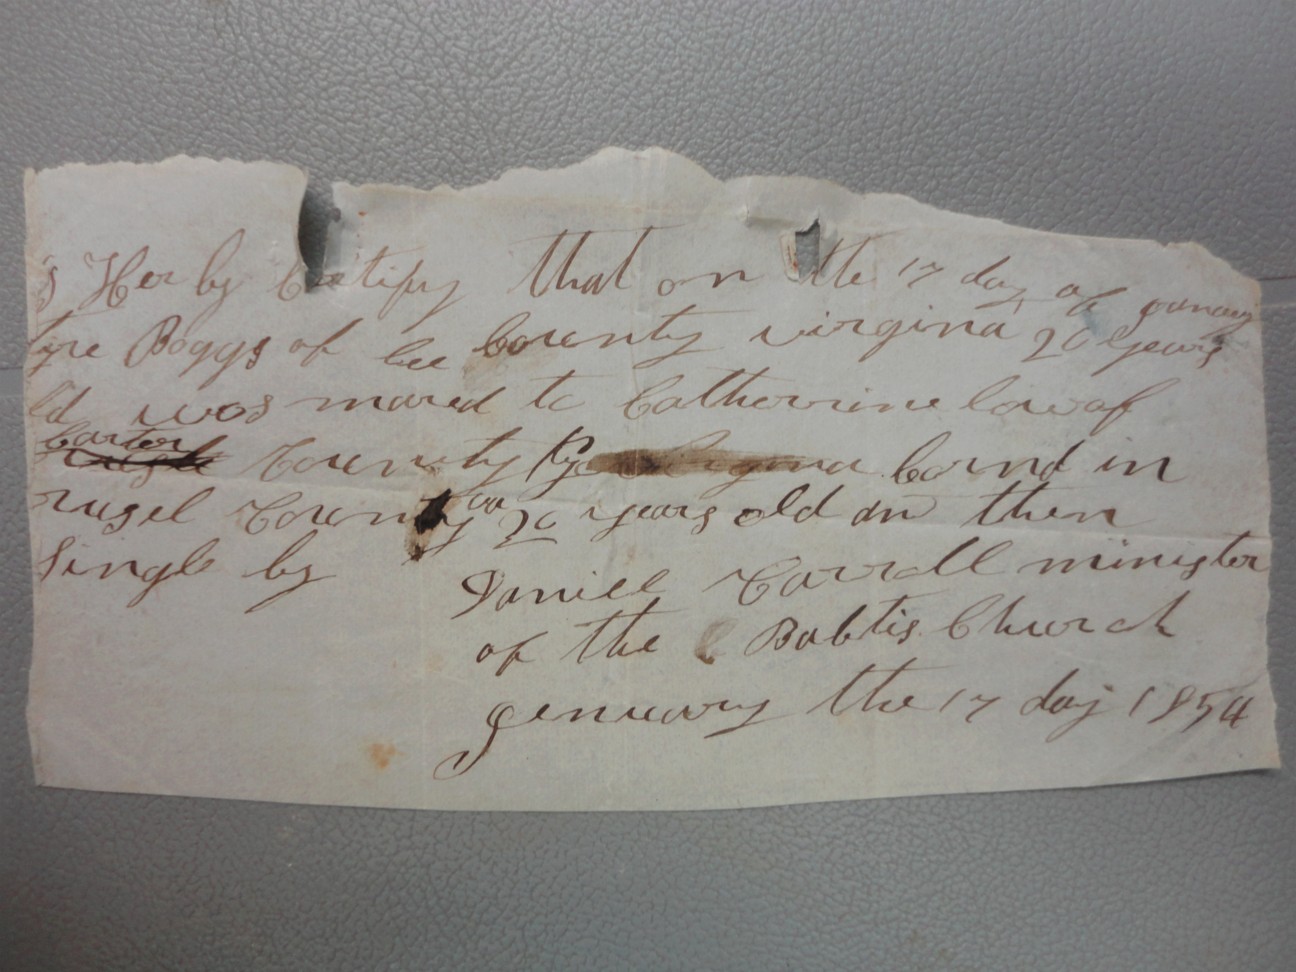 s Her by Certify that on the 17 day of January
yre Boggs of lee County virgina 20 years
ld was mared to Catherrine low of
Carter
County Ky bornd in
rusel County va 20 years old an then
Single by
Daniel Carrell minister
of the Babtis Church
genuary the 17 day 1854